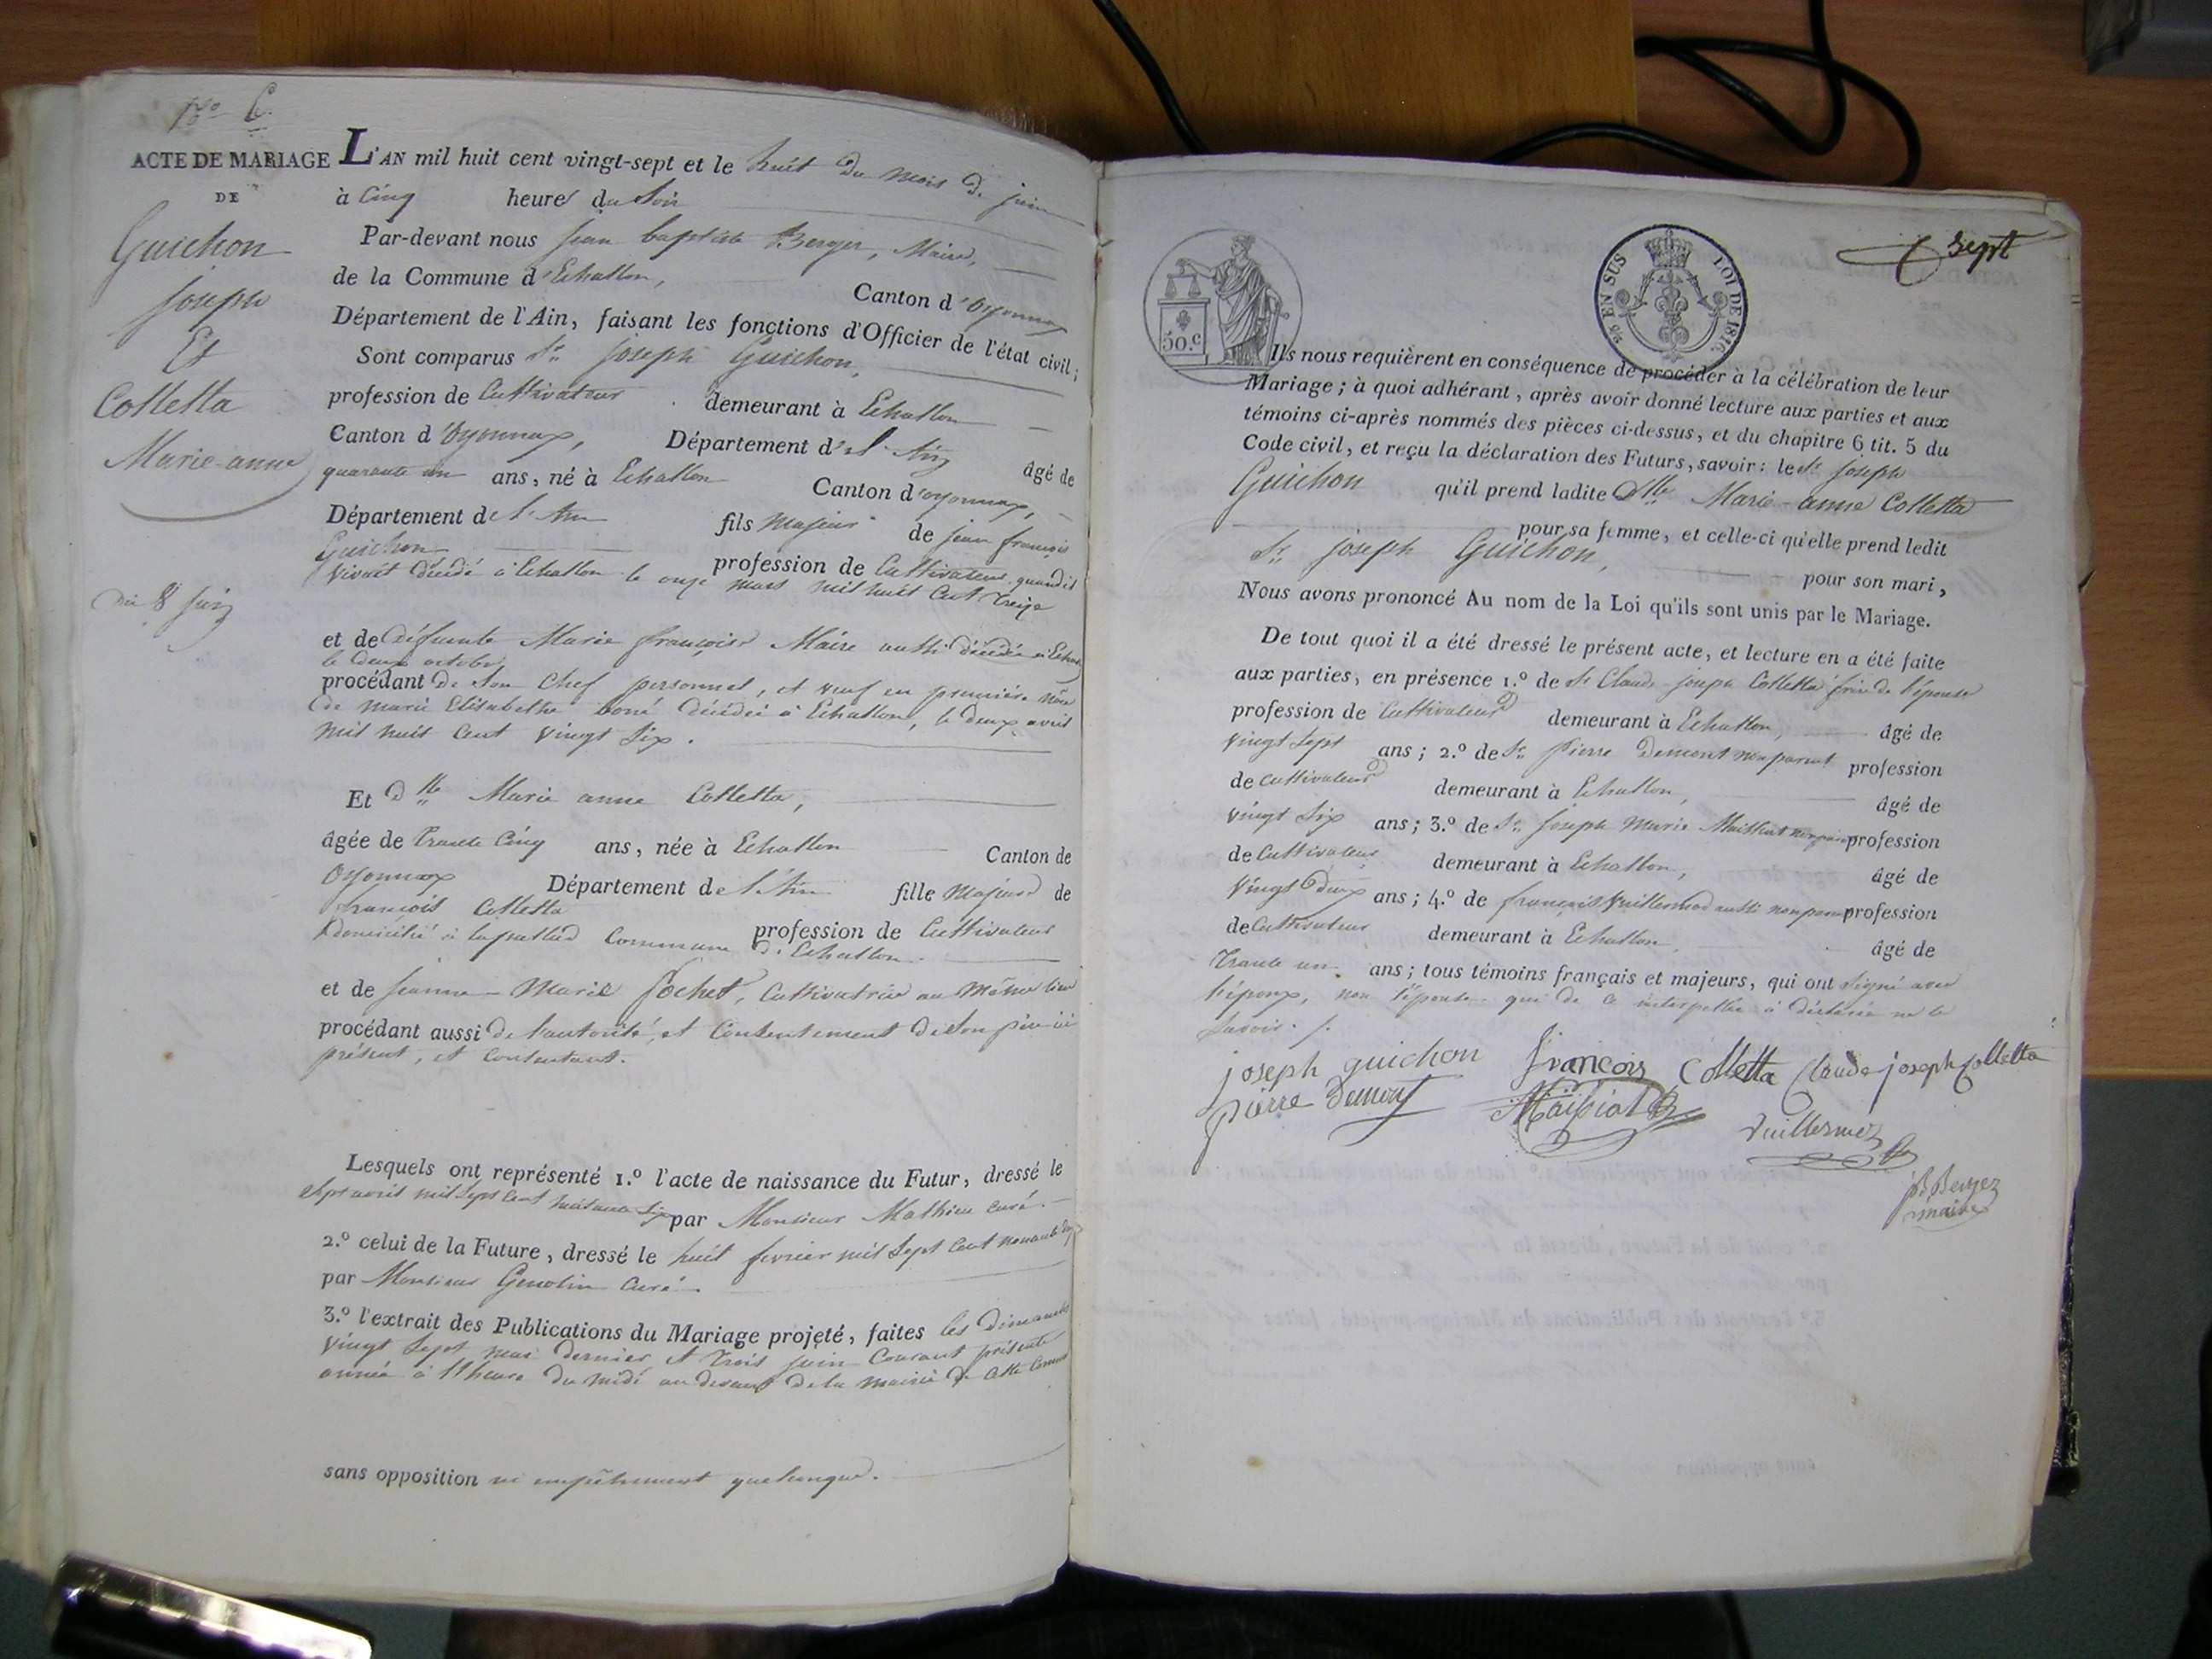 N.o 6.
ACTE DE MARIAGE
DE
Guichon
Joseph
Et
Colletta
Marie-anne
Du 8 Juin
L'AN mil huit cent vingt-sept et le huit du mois de juin
à Cinq heures du Soir
Par-devant nous jean baptiste Berger, Maire,
de la Commune d'Echallon, Canton d'Oyonnax
Département de l'Ain, faisant les fonctions d'Officier de l'état civil;
Sont comparus Sr. Joseph Guichon,
profession de Cultivateur demeurant à Echallon
Canton d'Oyonnax, Département de l'Ain âgé de
quarante un ans, né à Echallon Canton d'oyonnax,
Département de l'Ain fils Majeur de jean françois
Guichon profession de Cultivateur quand il
vivait décédé à Echallon le onze mars mil huit Cent Treize
et de défunte Marie françoise Maire aussi décédée à Echallon
le deux octobre
procédant de Son Chef personnel, et veuf en première
de marie Elisabethe boné décédée à Echallon, le deux avril
mil huit Cent vingt Six.
Et dlle Marie anne Colletta,
âgée de Trente Cinq ans, née à Echallon Canton de
Oyonnax Département de l'Ain fille Majeure de
françois Colletta profession de Cultivateur
domicilié à la susdite Commune d'Echallon.
et de jeanne-Marie Pochet, Cultivatrice au Même lieu
procédant aussi de l'autorité, et Contentement de Son père ici
présent, et Consentant.
Lesquels ont représenté 1.º l'acte de naissance du Futur, dressé le
Sept avril mil Sept Cent huitante Six par Monsieur Mathieu curé.
2.º celui de la Future, dressé le huit fevrier mil Sept Cent nonante deux
par Monsieur Genolin Curé
3.º l'extrait des Publications du Mariage projeté, faites les dimanches
vingt Sept mai dernier et Trois juin Courant présente
année à 11 heure du midi au devant de la mairie de Cette Comune
sans opposition ni empêchement quelconque.
50.c
2/5 EN SUS LOI DE 1816.
Sept
Ils nous requièrent en conséquence de procéder à la célébration de leur
Mariage; à quoi adhérant, après avoir donné lecture aux parties et aux
témoins ci-après nommés des pièces ci-dessus, et du chapitre 6 tit. 5 du
Code civil, et reçu la déclaration des Futurs, savoir: le Sr. Joseph
Guichon qu'il prend ladite dlle Marie-anne Colletta
pour sa femme, et celle-ci qu'elle prend ledit
Sr. Joseph Guichon, pour son mari,
Nous avons prononcé Au nom de la Loi qu'ils sont unis par le Mariage.
De tout quoi il a été dressé le présent acte, et lecture en a été faite
aux parties, en présence 1.º de Sr Claude joseph Colletta frère de l'épouse
profession de Cultivateur demeurant à Echallon, âgé de
vingt Sept ans; 2.º de Sr. Pierre Demont non parent profession
de cultivateur demeurant à Echallon, âgé de
vingt Six ans; 3.º de Sr. Joseph Marie Maissiat non parent profession
de Cultivateur demeurant à Echallon, âgé de
Vingt deux ans; 4.º de françois Vuillermod aussi non parent profession
de Cultivateur demeurant à Echallon, âgé de
Trante un ans; tous témoins français et majeurs, qui ont Signé avec
l'époux, non l'épouse qui de ce interpellée a déclarée ne le
Savoir.
joseph guichon françois Colletta Claude joseph Colletta
pierre Demont Maissiat Vuillermoz
JB Berger
maire